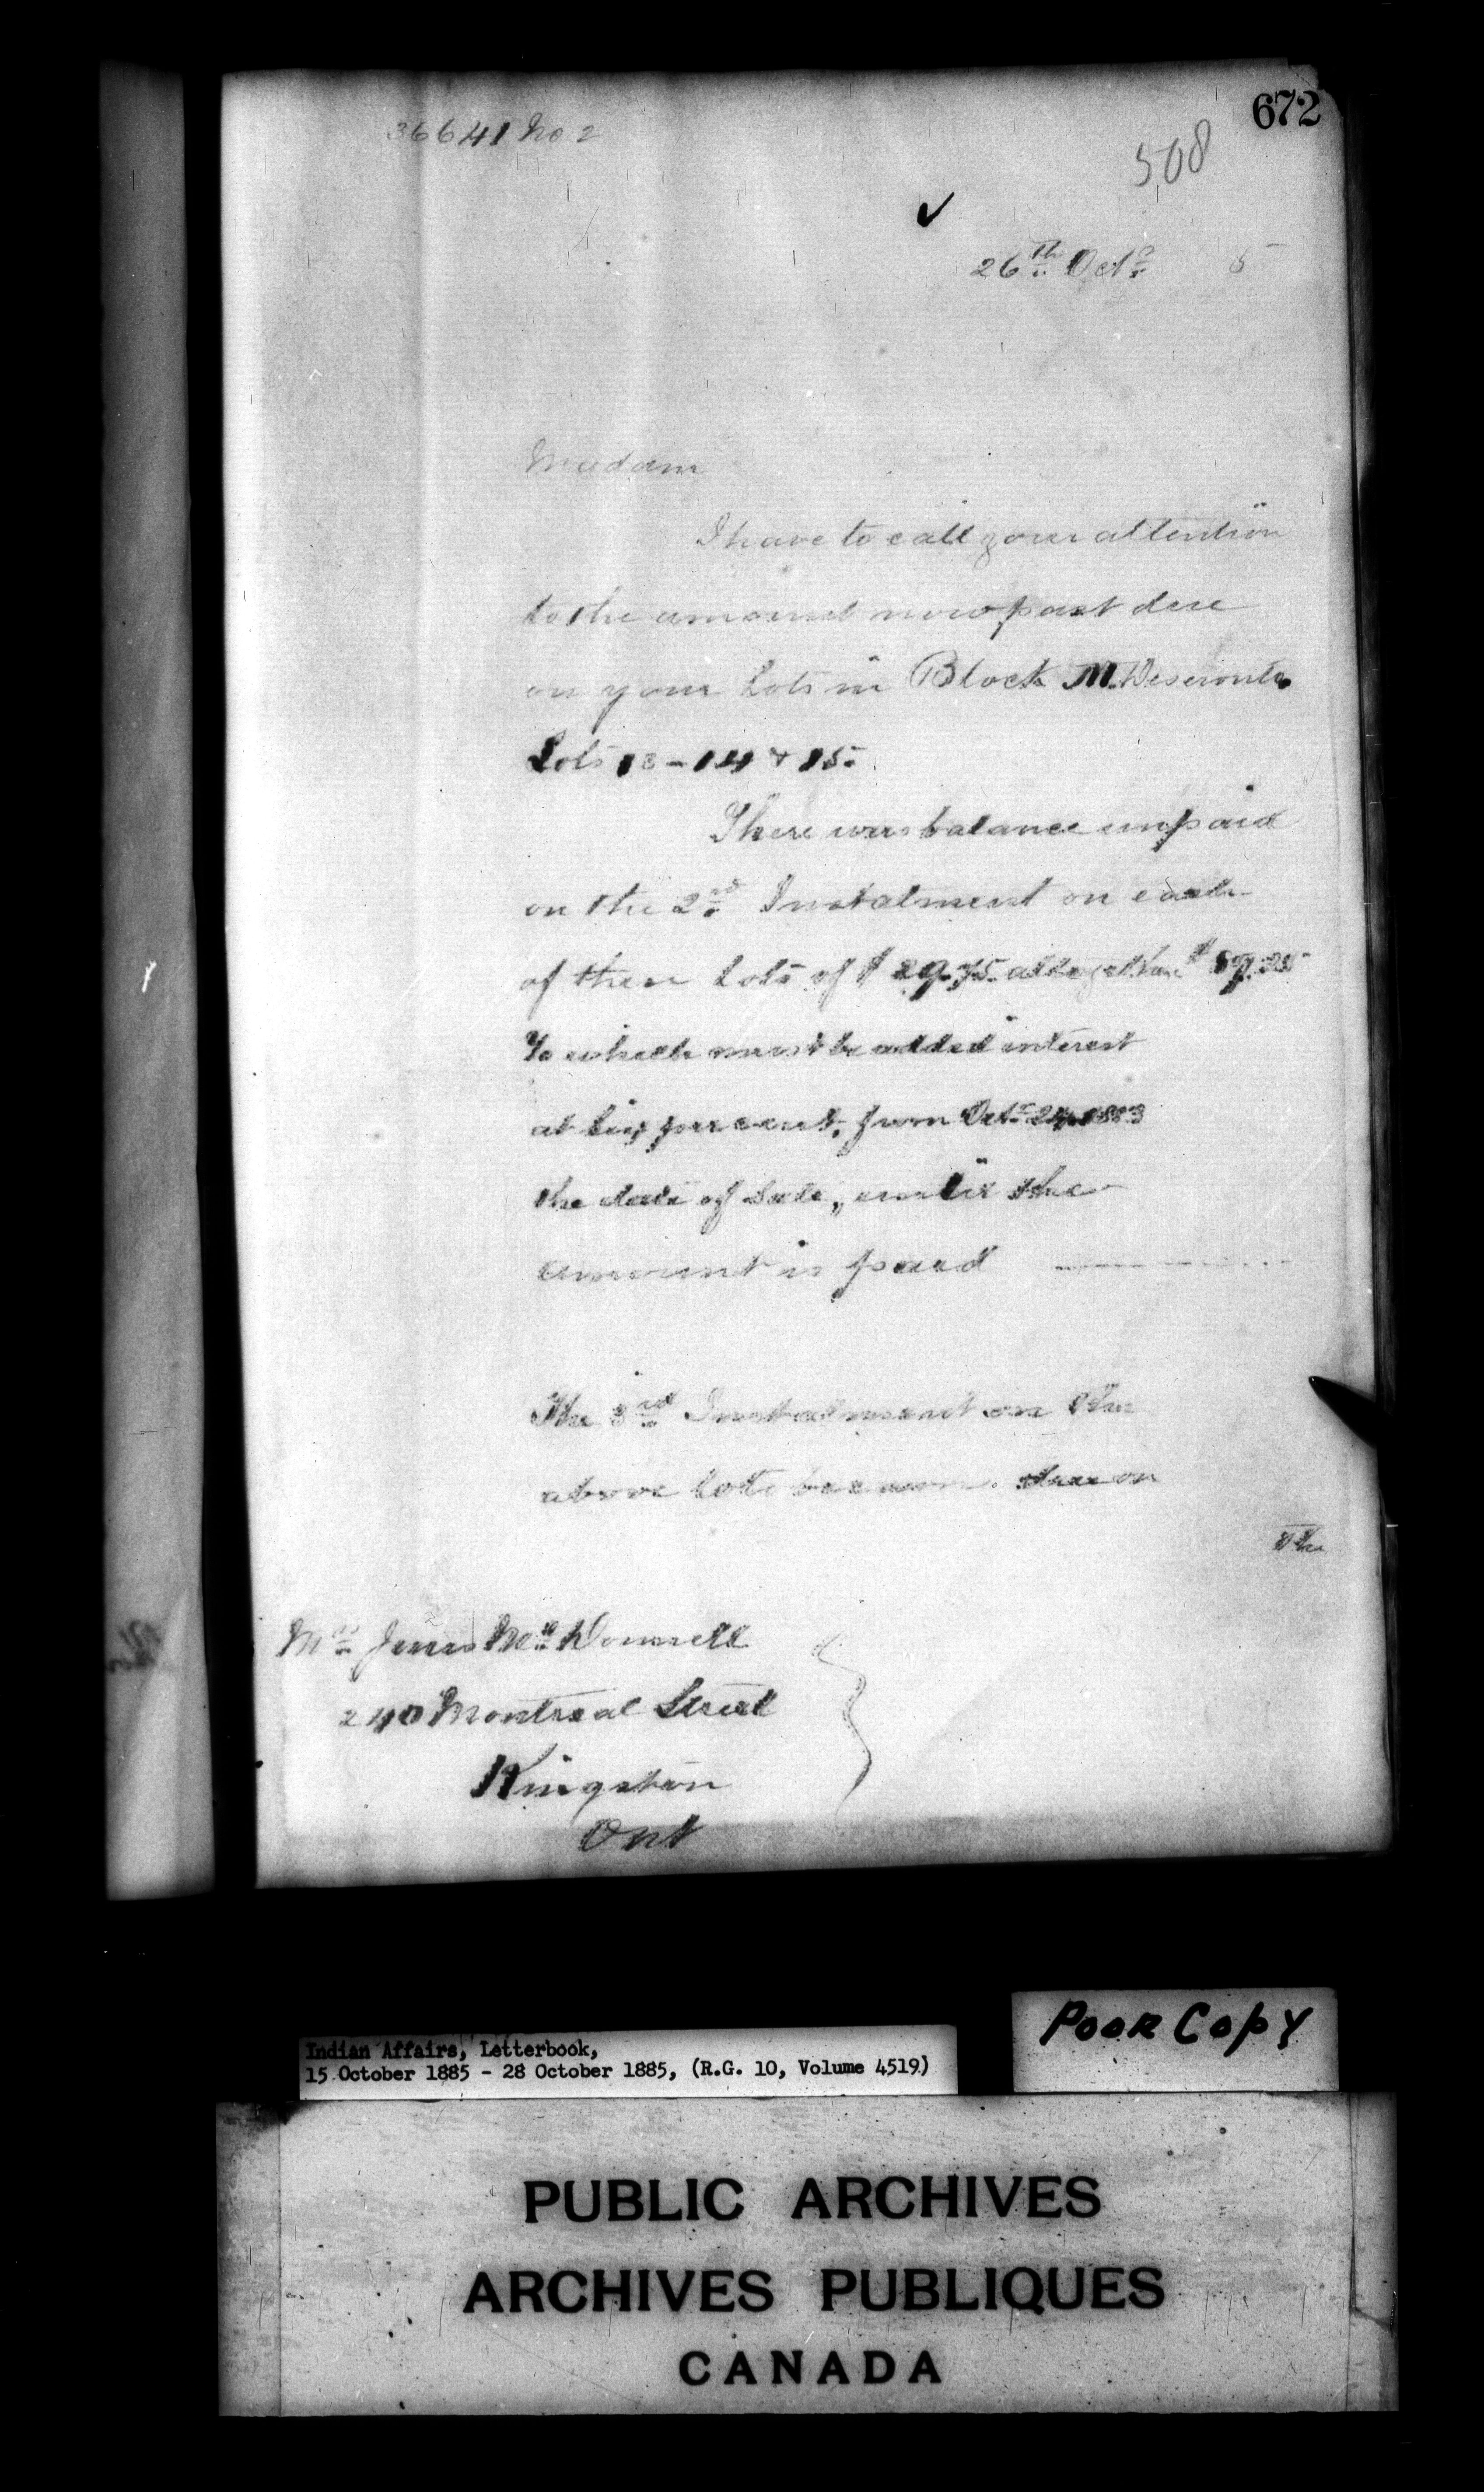 672
36641 No 2
508
26th Octr 5
Madam
I have to call your attention
to the amount now past due
on your Lots in Block M. Deseronto
Lots 13 - 14 + 15.
There was balance unpaid
on the 2nd Instalment on each
of these Lots of $29.75 altogether $89.25
To which must be added interest
at six per cent, from Octr 24, 1883
the date of Sale, until the
amount is paid
The 3rd Instalment on the
above lots became due on
the
Mrs James McDonnell
240 Montreal Street
Kingston
Ont
Poor Copy
Indian Affairs, Letterbook,
15 October 1885 - 28 October 1885, (R.G. 10, Volume 4519)
PUBLIC ARCHIVES
ARCHIVES PUBLIQUES
CANADA